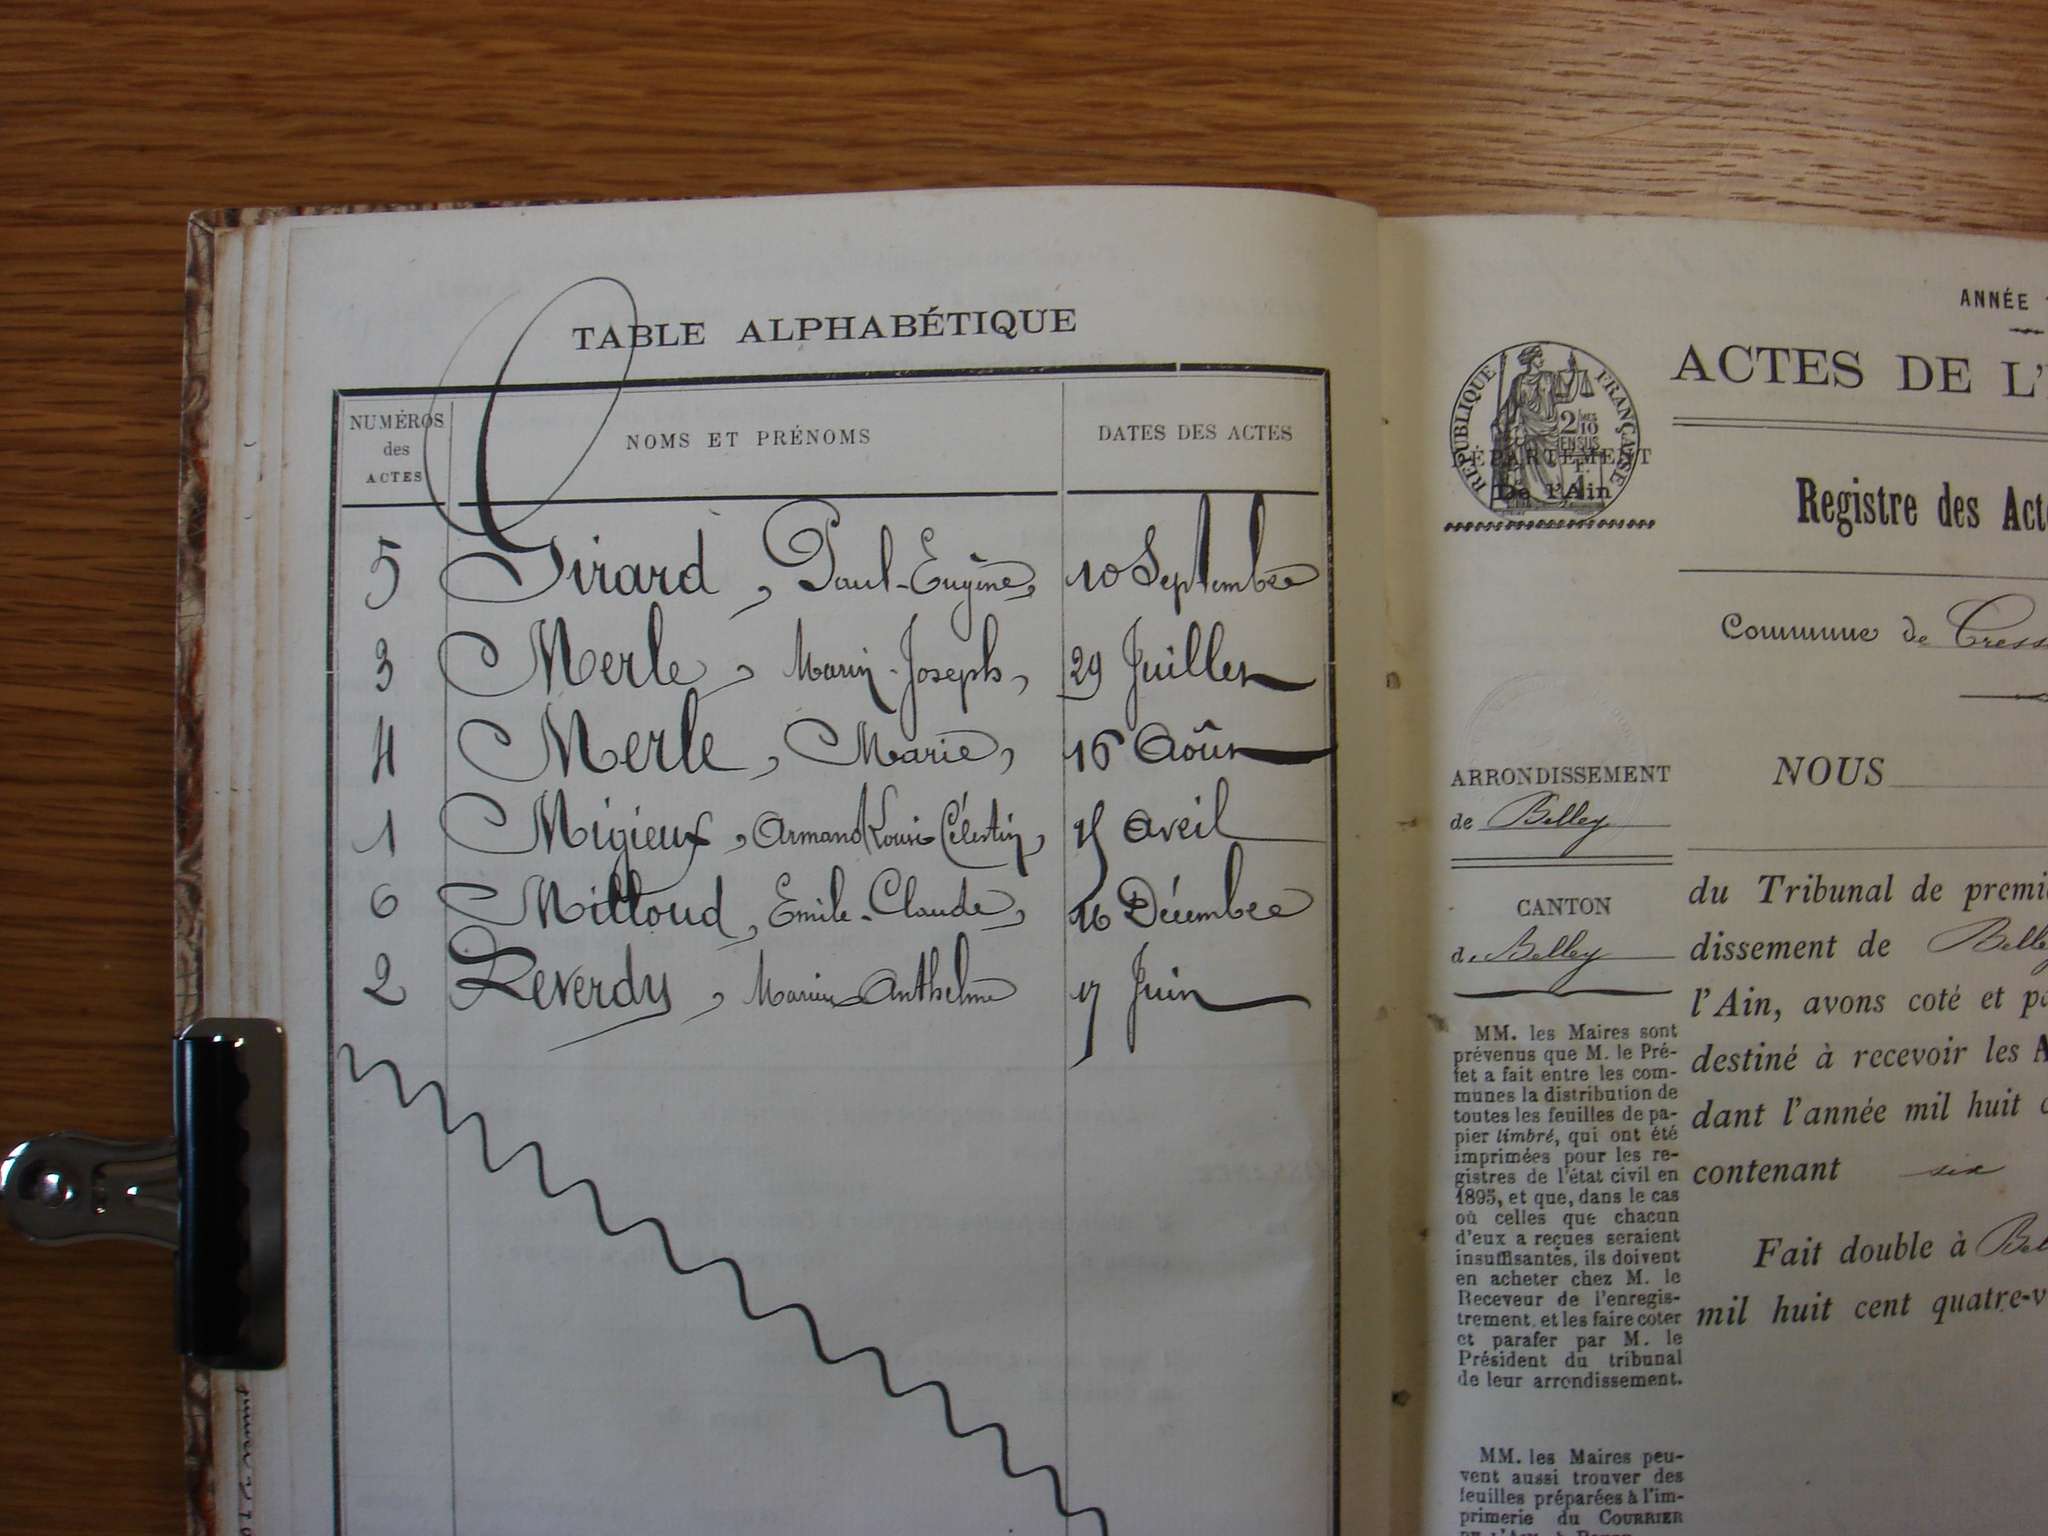 TABLE ALPHABÉTIQUE
NUMÉROS des ACTES
NOMS ET PRÉNOMS
DATES DES ACTES
5 Girard, Paul-Eugène, 10 Septembre
3 Merle, Marin-Joseph, 29 Juillet
4 Merle, Marie, 16 Août
1 Migieux, Armand Louis Célestin, 15 Avril
6 Milloud, Emile-Claude, 16 Décembre
2 Reverdy, Marius Anthelme 17 Juin
ANNÉE
ACTES DE L'
RÉPUBLIQUE FRANÇAISE
DÉPARTEMENT
De l'Ain
Registre des Acte
Commune de Cress
NOUS
ARRONDISSEMENT
de Belley
CANTON
de Belley
du Tribunal de premi
dissement de Belley
l'Ain, avons coté et pa
destiné à recevoir les A
dant l'année mil huit c
contenant six
Fait double à Bel
mil huit cent quatre-v
MM. les Maires sont
prévenus que M. le Pré-
fet a fait entre les com-
munes la distribution de
toutes les feuilles de pa-
pier timbré, qui ont été
imprimées pour les re-
gistres de l'état civil en
1895, et que, dans le cas
où celles que chacun
d'eux a reçues seraient
insuffisantes, ils doivent
en acheter chez M. le
Receveur de l'enregis-
trement, et les faire coter
et parafer par M. le
Président du tribunal
de leur arrondissement.
MM. les Maires peu-
vent aussi trouver des
feuilles préparées à l'im-
primerie du COURRIER